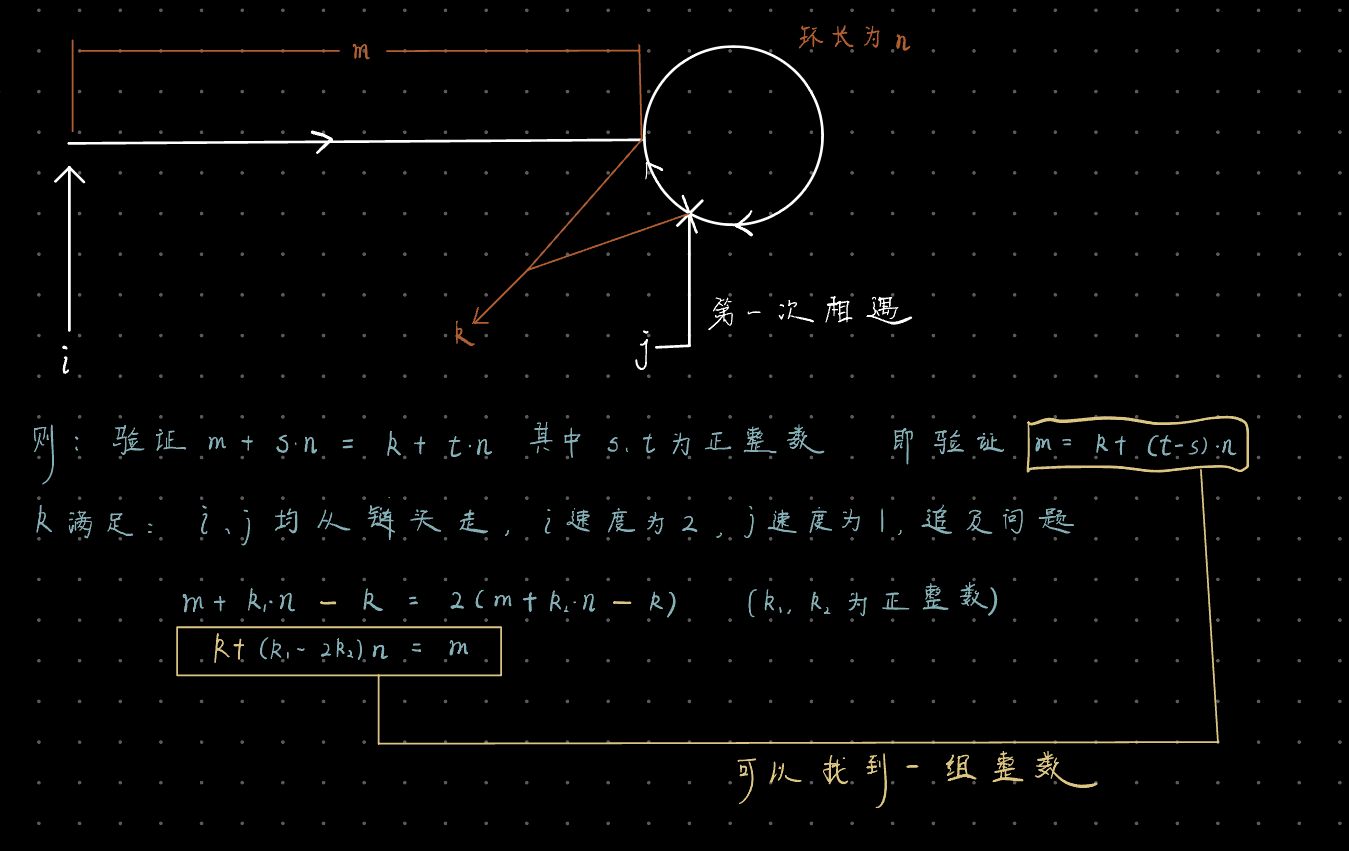 m
环长为 n
k
第一次相遇
i
j
则: 验证 m + s·n = k + t·n 其中 s、t 为正整数 即验证 m = k + (t-s)·n
k 满足: i、j 均从链头走, i 速度为 2, j 速度为 1, 追及问题
m + k₁·n - k = 2(m + k₂·n - k) (k₁, k₂ 为正整数)
k + (k₁ - 2k₂)n = m
可以找到一组整数